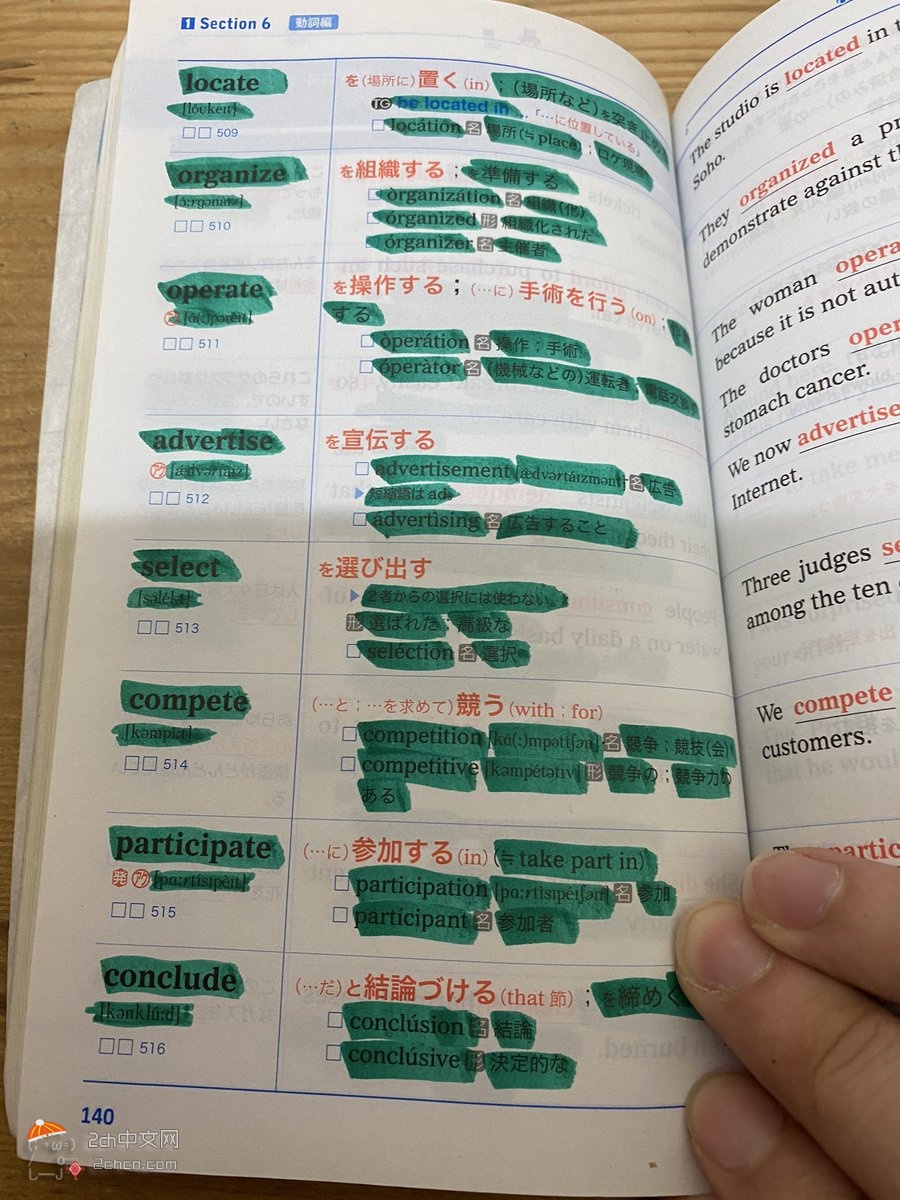 1 Section 6 動詞編
locate
[lóukeɪt]
□□ 509
を(場所に)置く(in);(場所など)を突き止める
TG be located in ... 「…に位置している」
□ locátion 名 場所(≒ place);ロケ現場
organize
[ɔ́ːrgənàɪz]
□□ 510
を組織する;を準備する
□ òrganizátion 名 組織(化)
□ órganized 形 組織化された
□ órganizer 名 主催者
operate
ア [ɑ́(ː)pərèɪt]
□□ 511
を操作する;(…に)手術を行う(on);作動
する
□ òperátion 名 操作;手術
□ óperàtor 名 (機械などの)運転者;電話交換手
advertise
ア [ǽdvərtàɪz]
□□ 512
を宣伝する
□ advertisement [ædvərtáɪzmənt] 名 広告
▶ 短縮語は ad。
□ ádvertising 名 広告すること
select
[səlékt]
□□ 513
を選び出す
▶ 2者からの選択には使わない。
形 選ばれた;高級な
□ seléction 名 選択
compete
[kəmpíːt]
□□ 514
(…と;…を求めて)競う(with ; for)
□ competition [kɑ̀(ː)mpətíʃən] 名 競争;競技(会)
□ competitive [kəmpétətɪv] 形 競争の;競争力の
ある
participate
発 ア [pɑːrtísɪpèɪt]
□□ 515
(…に)参加する(in)(≒ take part in)
□ participation [pɑːrtìsɪpéɪʃən] 名 参加
□ partícipant 名 参加者
conclude
[kənklúːd]
□□ 516
(…だ)と結論づける(that 節);を締めく
□ conclúsion 名 結論
□ conclúsive 形 決定的な
140
The studio is located in
Soho.
They organized a
demonstrate against
The woman
because it is not
The doctors
stomach cancer.
We now advertise
Internet.
Three judges
among the ten
We compete
customers.
2ch中文网
2chcn.com